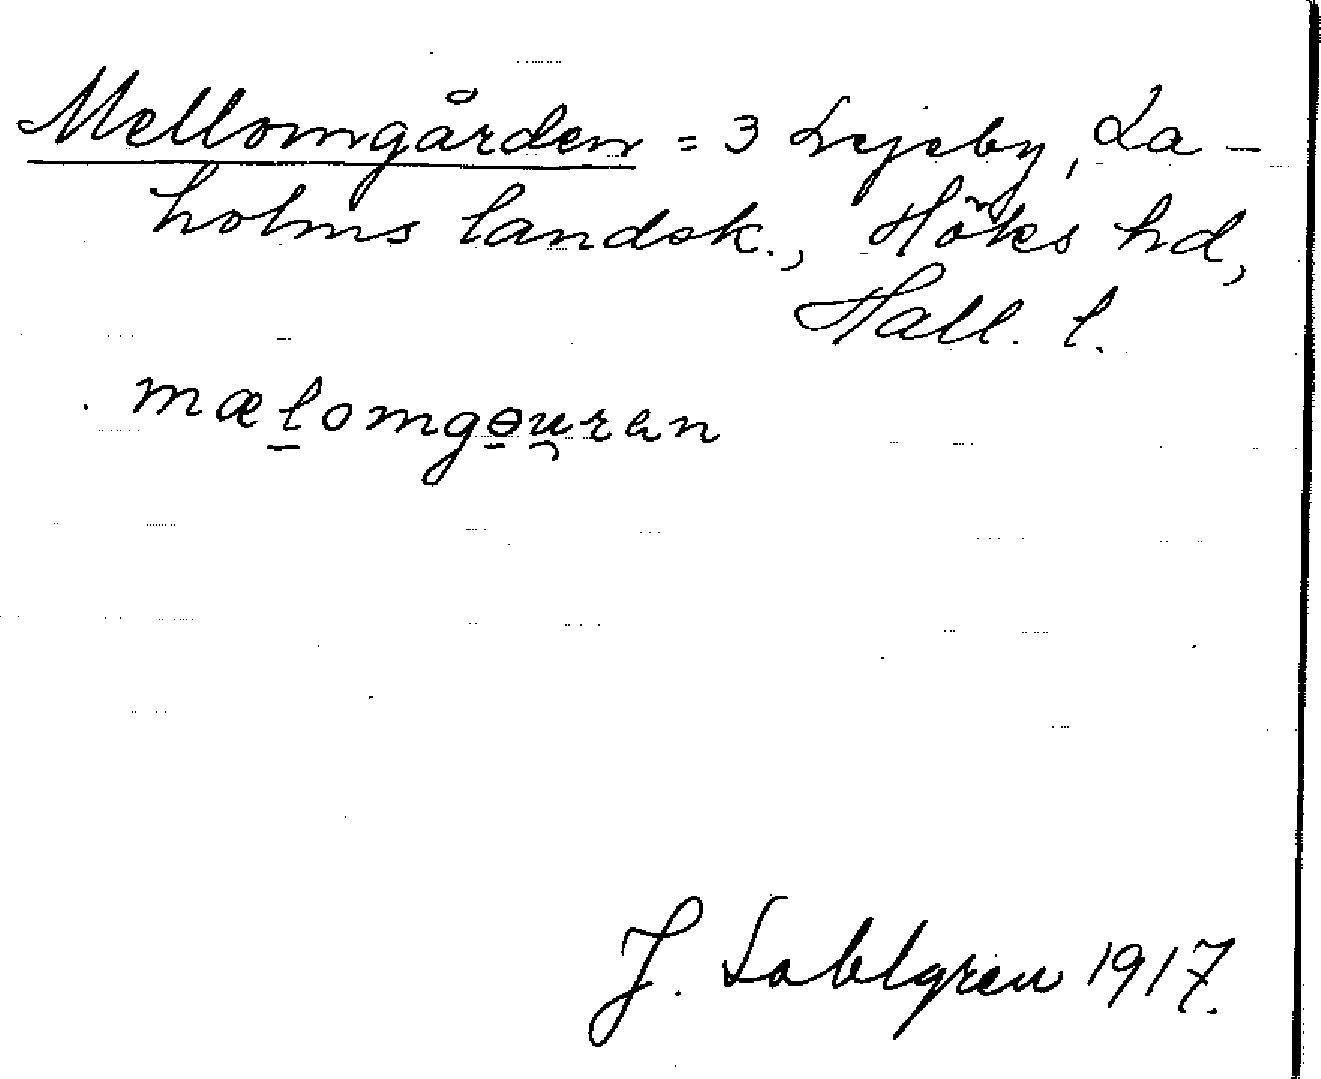 Mellomgården = 3 Lejeby, La-
holms landsk., Höks hd,
Hall. l.
mælomgɵu̯ren
J. Sahlgren 1917.